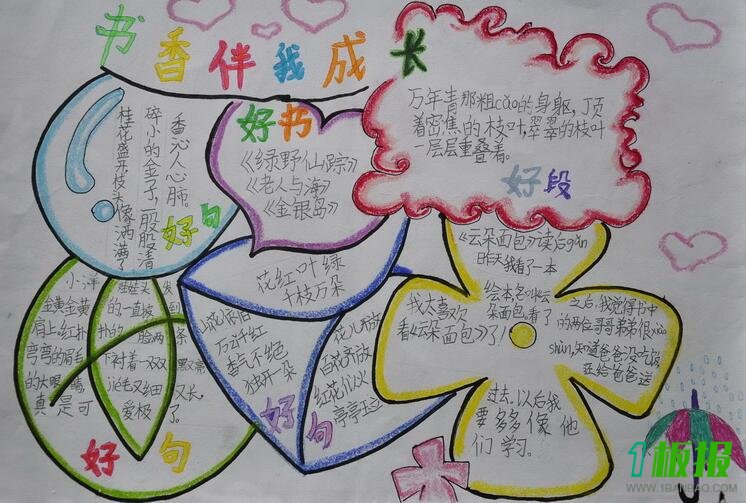 书香伴我成长
桂花盛开枝头像洒满了
碎小的金子,一股股清
香沁人心肺。
好句
好书
《绿野仙踪》
《老人与海》
《金银岛》
万年青那粗cāo的身躯,顶
着密焦的枝叶,翠翠的枝叶
一层层重叠着。
好段
小洋
金黄金黄
肩上红扑
弯弯的眉毛
的大眼睛
真是可
的一直披
扑的脸两
下衬着一双双
毛又细
爱极
又长,
了。
好句
花红叶绿
千枝万朵
万紫千红
香气不绝
独开一朵
花儿开放
百花齐放
红花似火
亭亭玉立
好句
《云朵面包》读后gǎn
昨天我看了一本
绘本,名叫《云
朵面包》,看了
我太喜欢
看《云朵面包》了!
之后,我觉得书中
的两位哥哥弟弟很xiào
shùn,知道爸爸没吃饭
还给爸爸送
过去.以后我
要多多像他
们学习。
1板报
WWW.1BANBAO.COM